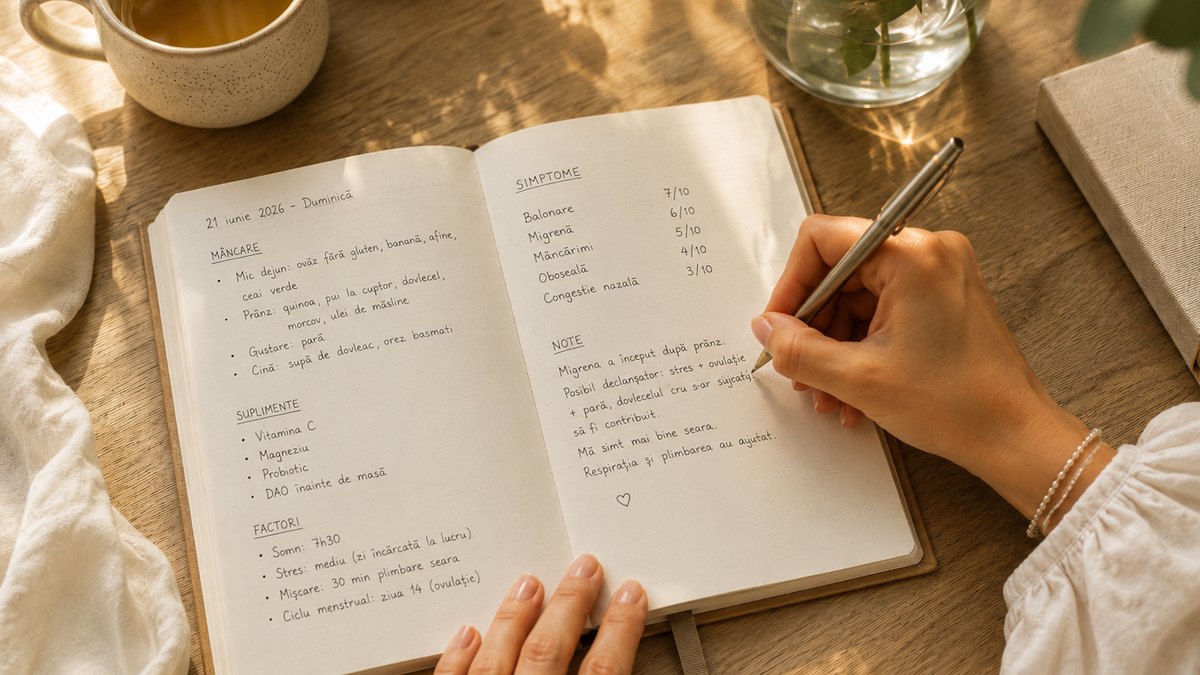 21 iunie 2026 - Duminică
MÂNCARE
• Mic dejun: ovăz fără gluten, banană, afine,
ceai verde
• Prânz: quinoa, pui la cuptor, dovlecel,
morcov, ulei de măsline
• Gustare: pară
• Cină: supă de dovleac, orez basmati
SUPLIMENTE
• Vitamina C
• Magneziu
• Probiotic
• DAO înainte de masă
FACTORI
• Somn: 7h30
• Stres: mediu (zi încărcată la lucru)
• Mișcare: 30 min plimbare seara
• Ciclu menstrual: ziua 14 (ovulație)
SIMPTOME
Balonare 7/10
Migrenă 6/10
Mâncărimi 5/10
Oboseală 4/10
Congestie nazală 3/10
NOTE
Migrena a început după prânz.
Posibil declanșator: stres + ovulație
+ pară, dovlecelul cru s-ar
să fi contribuit.
Mă simt mai bine seara.
Respirația și plimbarea au ajutat.
♡